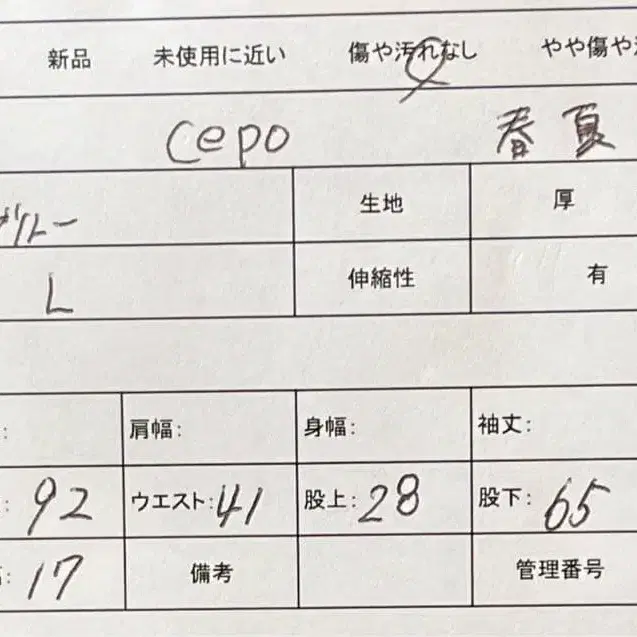 新品 未使用に近い 傷や汚れなし やや傷や
cepo 春夏
グレー 生地 厚
L 伸縮性 有
: 肩幅: 身幅: 袖丈:
: 92 ウエスト: 41 股上: 28 股下: 65
: 17 備考 管理番号